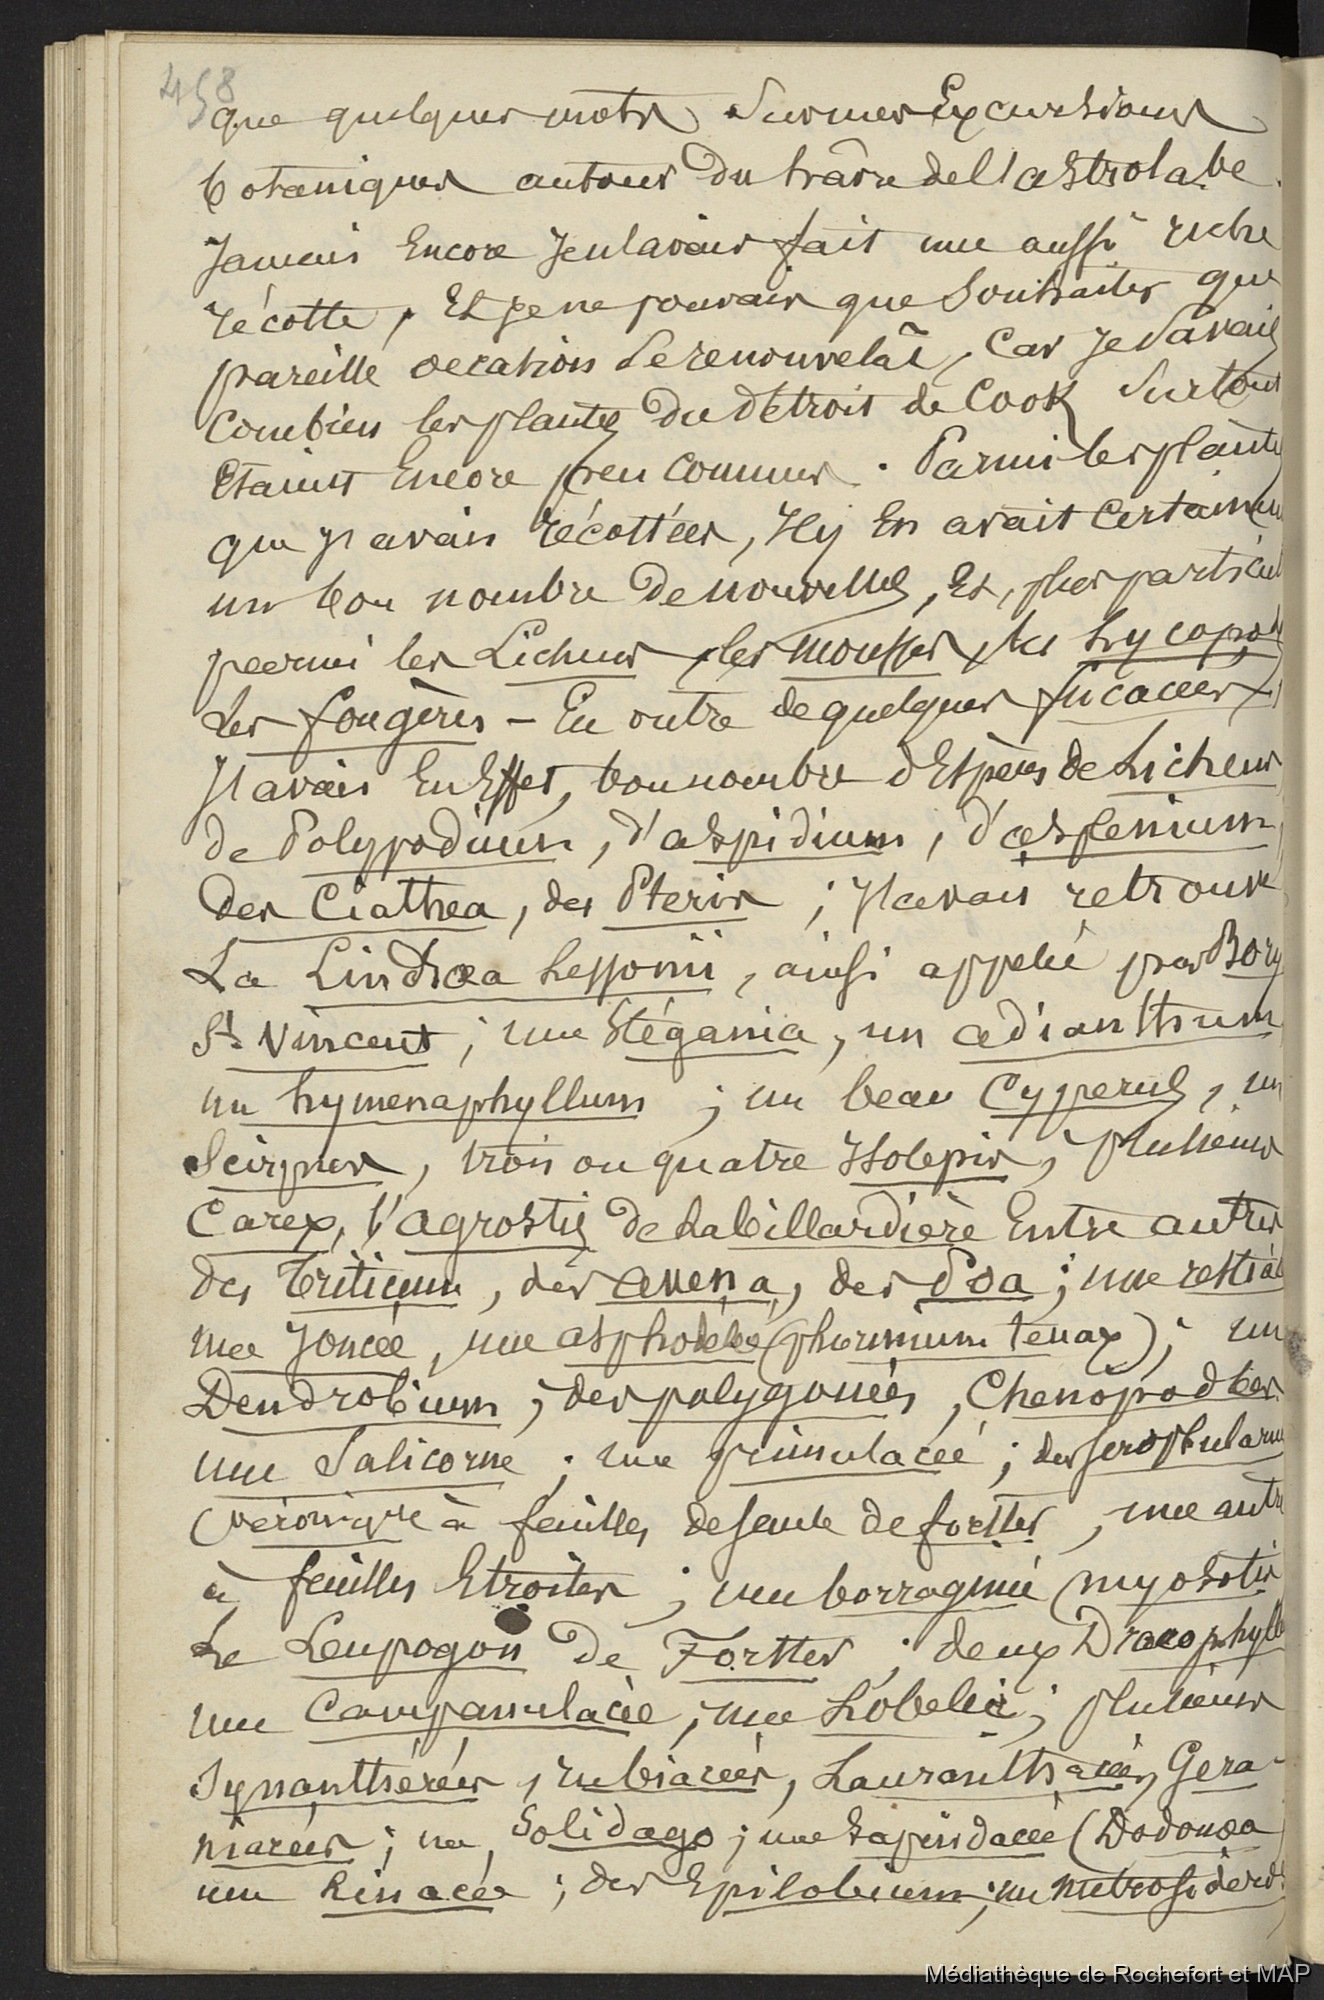 458
que quelques mots sur mes Excursions
botaniques autour du hâvre de l'astrolabe.
Jamais Encore Je n'avais fait une aussi riche
récolte, Et je ne pouvais que souhaiter que
pareille occasion se renouvelât, Car Je savais
Combien les plantes Du détroit de Cook surtout
Etaient Encore peu connues. Parmi les plantes
que J'avais récoltées, Il y En avait certainem
un bon nombre De nouvelles, Et, plus particul
parmi les Lichens, les mousses, les Lycopod
Les fougères – En outre de quelques fucacées,
J'avais En Effet, bon nombre d'Espèces de Lichens
de Polypodium, d'aspidium, d'asplenium,
des Ciathea, des Pteris ; J'avais retrouvé
La Lindsœa Lessonii, ainsi appelée par Bory
St. Vincent ; une Stégania, un adianthum
un hymenaphyllum ; un beau Cyperus, un
Scirpus, trois ou quatre Isolepis, plusieurs
Carex, l'agrostis de Labillardière Entre autres
des Triticum, des avena, des Poa ; une restiac
une Joncée, une asphodélée (phormium tenax) ; un
Dendrobium ; des polygonées, Chenopodées
une Salicorne ; une primulacée ; des scrophularin
(véronique à feuilles de saule de forster, une autre
à feuilles Etroites ; une borraginée (myosotis
Le Leupogon De Forster ; deux Dracophyll
une Campanulacée, une Lobelia ; plusieurs
Synanthérées, rubiacées, Lauranthacées, Gera-
niacées ; un Solidago ; une Sapindacée (Dodonœa
une Linacée ; des Epilobium ; un metrosideros
Médiathèque de Rochefort et MAP